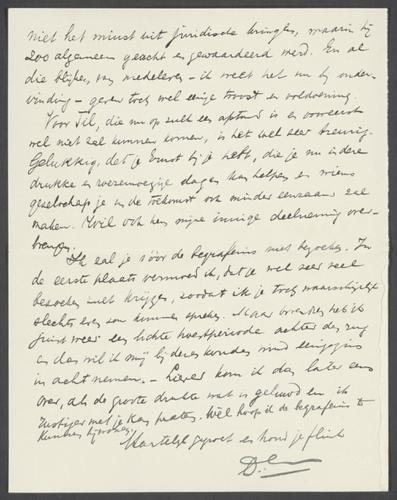 niet het minst uit juridische kringen, waarin hij
zoo algemeen geacht en gewaardeerd werd. En al
die blijken van medeleven - ik weet het nu bij onder-
vinding - geven toch wel eenige troost en voldoening.
Voor Til, die nu op zulk een afstand is en vooreerst
wel niet zal kunnen komen, is het wel zeer treurig.
Gelukkig, dat je Ernst bij je hebt, die je nu in deze
drukke en zenuwachtige dagen kan helpen en wiens
gezelschap je in de toekomst ook minder eenzaam zal
maken. Wil ook hem mijne innige deelneming over-
brengen.
Ik zal je vóór de begrafenis niet bezoeken. In
de eerste plaats vermoed ik, dat je wel zeer veel
bezoeken zult krijgen, zoodat ik je toch waarschijnlijk
slechts even zou kunnen spreken. Maar bovendien heb ik
juist weer een lichte hoestperiode achter den rug
en dan wil ik mij bij deze koude wind eenigszins
in acht nemen. - Liever kom ik dan later eens
over, als de groote drukte wat is geluwd en ik
rustiger met je kan praten. Wèl hoop ik de begrafenis te
kunnen bijwonen.
Hartelijk gegroet en houd je flink